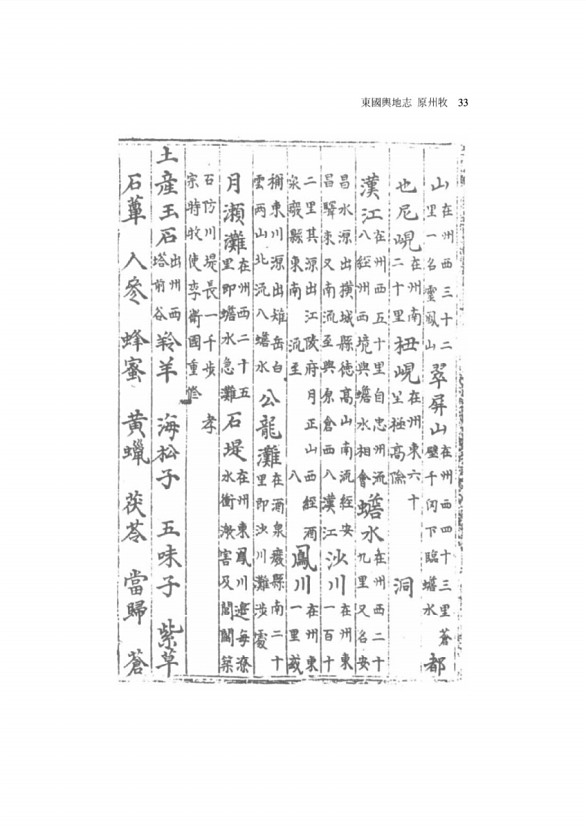 東國輿地志 原州牧 33
山 在州西三十二里一名靈鳳山 翠屏山 在州西四十三里蒼壁千仞下臨蟾水 都
也尼峴 在州南二十里 杻峴 在州東六十里極高險 洞
漢江 在州西五十里自忠州流入經州西境與蟾水相會 蟾水 在州西二十九里又名安
昌水源出橫城縣德高山南流經安昌驛東又南流至興原倉西入漢江 沙川 在州東一百十
二里其源出江陵府月正山西經酒泉廢縣東南流至 八 鳳川 在州東一里或
東川源出雉岳白雲兩山北流入蟾水 公龍灘 在酒泉廢縣南二十里即沙川灘涉處
月瀬灘 在州西二十五里即蟾水急灘 石堤 在州東鳳川邊每潦水衝激害及閭閻築
石防川堤長一千步 孝宗時牧使李衛國重修
土産玉石 出州西塔前谷 羚羊 海松子 五味子 紫草
石蕈 人參 蜂蜜 黃蠟 茯苓 當歸 蒼